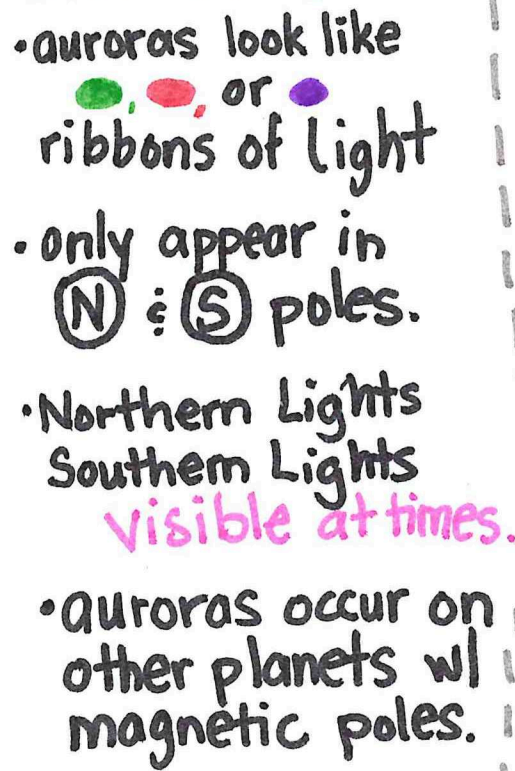 •auroras look like
, , or
ribbons of light
•only appear in
N & S poles.
•Northern Lights
Southern Lights
visible at times.
•auroras occur on
other planets w/
magnetic poles.